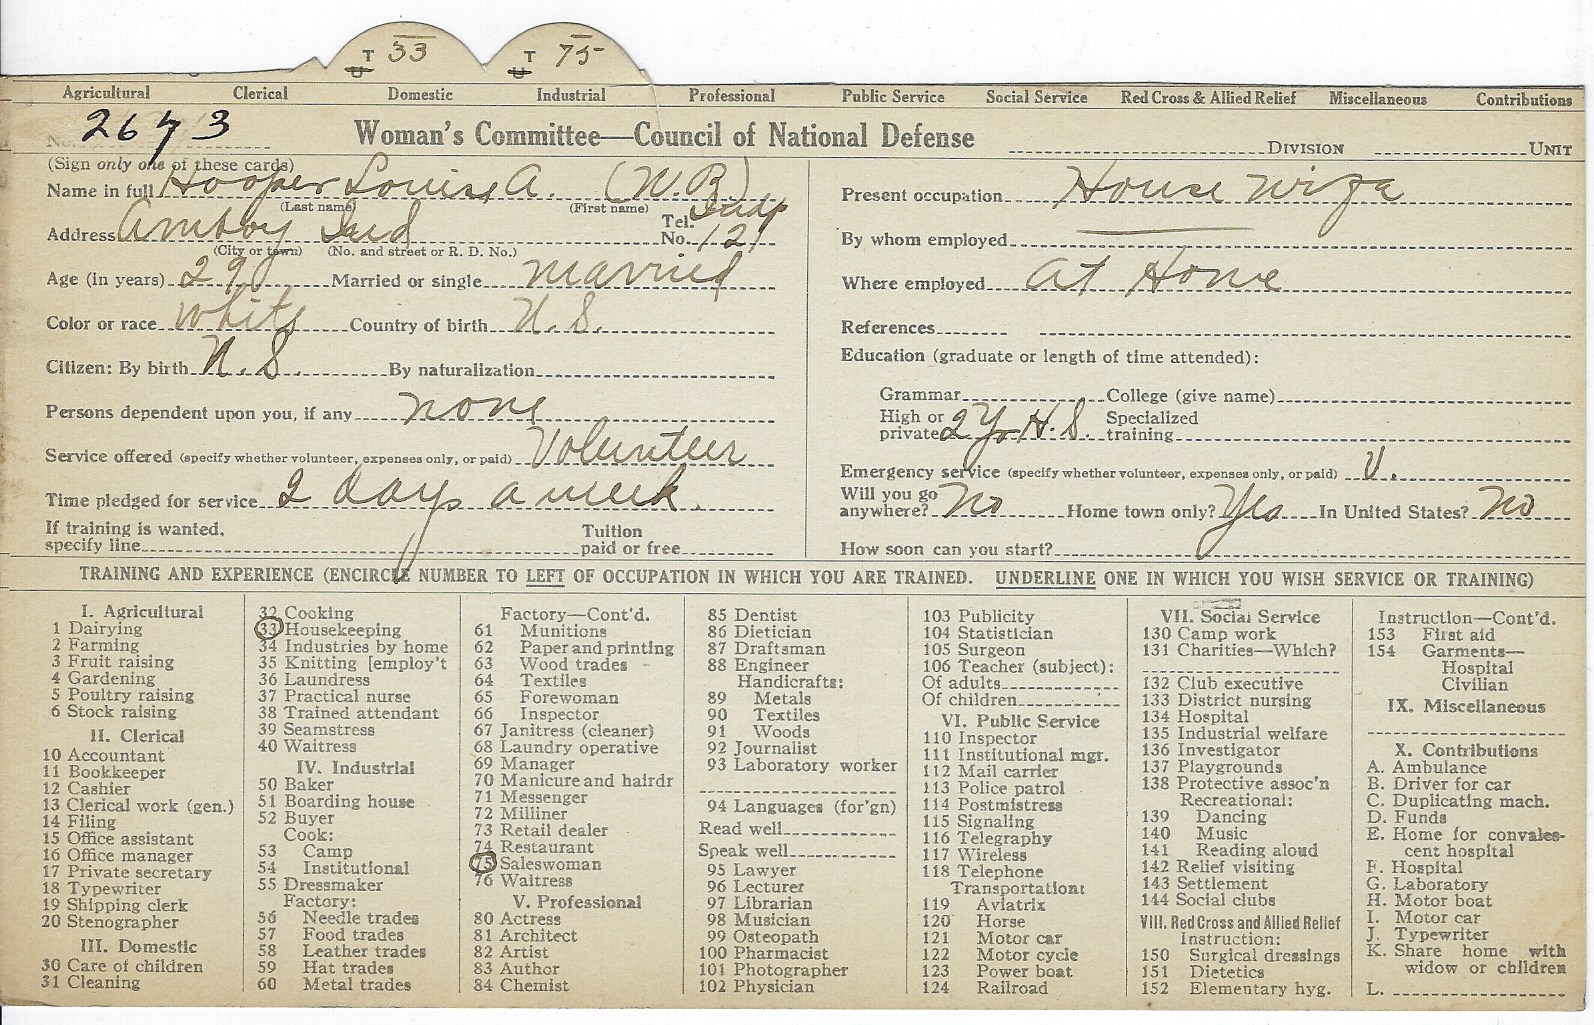 T 33 T 75
U U
Agricultural Clerical Domestic Industrial Professional Public Service Social Service Red Cross & Allied Relief Miscellaneous Contributions
No. 2673
Woman's Committee—Council of National Defense DIVISION UNIT
(Sign only one of these cards)
Name in full Hooper Louise A. (W.B)
(Last name) (First name)
Address Amboy Ind Tel. No. Indp 121
(City or town) (No. and street or R. D. No.)
Age (in years) 29 Married or single married
Color or race white Country of birth U.S.
Citizen: By birth U.S. By naturalization
Persons dependent upon you, if any none
Service offered (specify whether volunteer, expenses only, or paid) Volunteer
Time pledged for service 2 days a week.
If training is wanted, specify line Tuition paid or free
Present occupation House wife
By whom employed
Where employed at Home
References
Education (graduate or length of time attended):
Grammar College (give name)
High or private 2 Yr H.S. Specialized training
Emergency service (specify whether volunteer, expenses only, or paid) V.
Will you go anywhere? No Home town only? Yes In United States? No
How soon can you start?
TRAINING AND EXPERIENCE (ENCIRCLE NUMBER TO LEFT OF OCCUPATION IN WHICH YOU ARE TRAINED. UNDERLINE ONE IN WHICH YOU WISH SERVICE OR TRAINING)
I. Agricultural
1 Dairying
2 Farming
3 Fruit raising
4 Gardening
5 Poultry raising
6 Stock raising
II. Clerical
10 Accountant
11 Bookkeeper
12 Cashier
13 Clerical work (gen.)
14 Filing
15 Office assistant
16 Office manager
17 Private secretary
18 Typewriter
19 Shipping clerk
20 Stenographer
III. Domestic
30 Care of children
31 Cleaning
32 Cooking
33 Housekeeping
34 Industries by home
35 Knitting [employ't
36 Laundress
37 Practical nurse
38 Trained attendant
39 Seamstress
40 Waitress
IV. Industrial
50 Baker
51 Boarding house
52 Buyer
Cook:
53 Camp
54 Institutional
55 Dressmaker
Factory:
56 Needle trades
57 Food trades
58 Leather trades
59 Hat trades
60 Metal trades
Factory—Cont'd.
61 Munitions
62 Paper and printing
63 Wood trades
64 Textiles
65 Forewoman
66 Inspector
67 Janitress (cleaner)
68 Laundry operative
69 Manager
70 Manicure and hairdr
71 Messenger
72 Milliner
73 Retail dealer
74 Restaurant
75 Saleswoman
76 Waitress
V. Professional
80 Actress
81 Architect
82 Artist
83 Author
84 Chemist
85 Dentist
86 Dietician
87 Draftsman
88 Engineer
Handicrafts:
89 Metals
90 Textiles
91 Woods
92 Journalist
93 Laboratory worker
94 Languages (for'gn)
Read well
Speak well
95 Lawyer
96 Lecturer
97 Librarian
98 Musician
99 Osteopath
100 Pharmacist
101 Photographer
102 Physician
103 Publicity
104 Statistician
105 Surgeon
106 Teacher (subject):
Of adults
Of children
VI. Public Service
110 Inspector
111 Institutional mgr.
112 Mail carrier
113 Police patrol
114 Postmistress
115 Signaling
116 Telegraphy
117 Wireless
118 Telephone
Transportation:
119 Aviatrix
120 Horse
121 Motor car
122 Motor cycle
123 Power boat
124 Railroad
VII. Social Service
130 Camp work
131 Charities—Which?
132 Club executive
133 District nursing
134 Hospital
135 Industrial welfare
136 Investigator
137 Playgrounds
138 Protective assoc'n
Recreational:
139 Dancing
140 Music
141 Reading aloud
142 Relief visiting
143 Settlement
144 Social clubs
VIII. Red Cross and Allied Relief
Instruction:
150 Surgical dressings
151 Dietetics
152 Elementary hyg.
Instruction—Cont'd.
153 First aid
154 Garments—
Hospital
Civilian
IX. Miscellaneous
X. Contributions
A. Ambulance
B. Driver for car
C. Duplicating mach.
D. Funds
E. Home for convales-
cent hospital
F. Hospital
G. Laboratory
H. Motor boat
I. Motor car
J. Typewriter
K. Share home with
widow or children
L.